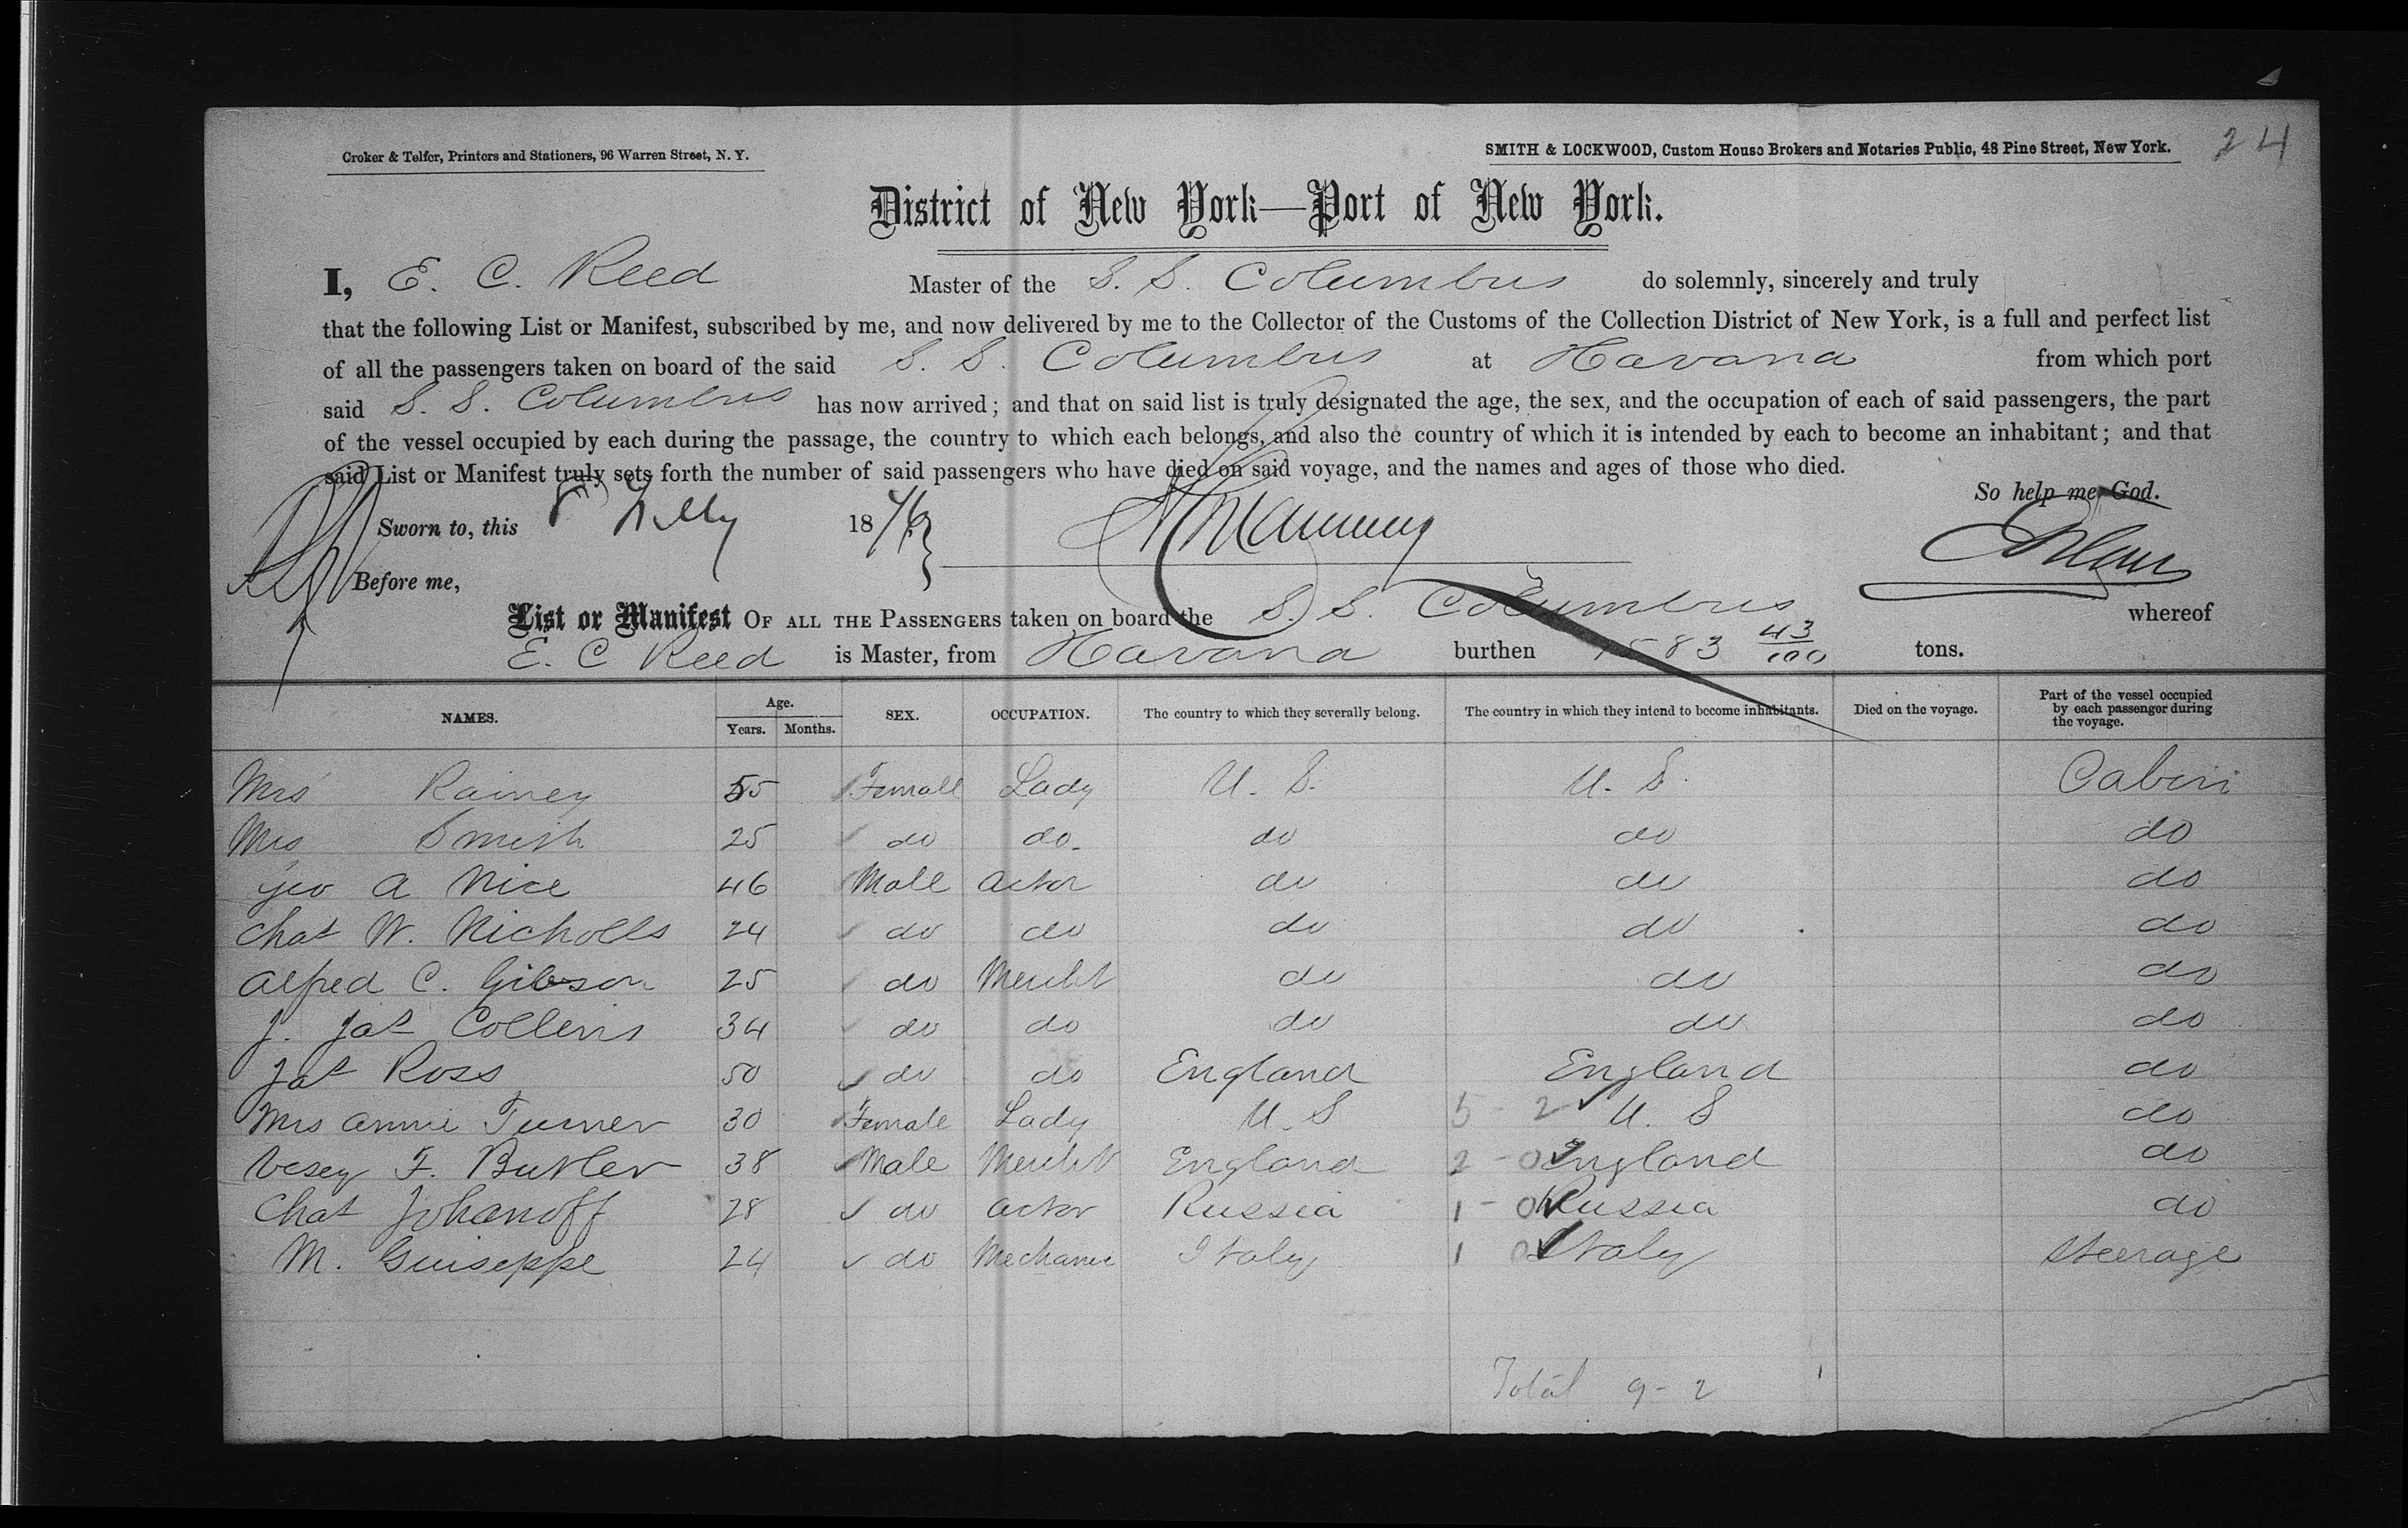 Croker & Telfer, Printers and Stationers, 96 Warren Street, N. Y.
SMITH & LOCKWOOD, Custom House Brokers and Notaries Public, 48 Pine Street, New York. 24
District of New York—Port of New York.
I, E. C. Reed Master of the S. S. Columbus do solemnly, sincerely and truly
that the following List or Manifest, subscribed by me, and now delivered by me to the Collector of the Customs of the Collection District of New York, is a full and perfect list
of all the passengers taken on board of the said S. S. Columbus at Havana from which port
said S. S. Columbus has now arrived; and that on said list is truly designated the age, the sex, and the occupation of each of said passengers, the part
of the vessel occupied by each during the passage, the country to which each belongs, and also the country of which it is intended by each to become an inhabitant; and that
said List or Manifest truly sets forth the number of said passengers who have died on said voyage, and the names and ages of those who died.
So help me God.
Sworn to, this 18
Before me,
List or Manifest OF ALL THE PASSENGERS taken on board the S. S. Columbus whereof
E. C Reed is Master, from Havana burthen 1583 43/100 tons.
NAMES. Age. Years. Months. SEX. OCCUPATION. The country to which they severally belong. The country in which they intend to become inhabitants. Died on the voyage. Part of the vessel occupied by each passenger during the voyage.
Mrs Rainey 55 Female Lady U. S. U. S. Cabin
Mrs Smith 25 do do do do do
Geo A Nice 46 Male Actor do do do
Chas W. Nicholls 24 do do do do do
Alfred C. Gibson 25 do Mercht do do do
J. Jas Collins 34 do do do do do
Jas Ross 50 do do England England do
Mrs Annie Turner 30 Female Lady U. S 5 - 2 U. S do
Vesey F. Butler 38 Male Mercht England 2 - 0 England do
Chas Johanoff 28 do Actor Russia 1 - 0 Russia do
M. Guiseppe 24 do Mechanic Italy 1 0 Italy Steerage
Total 9 - 2